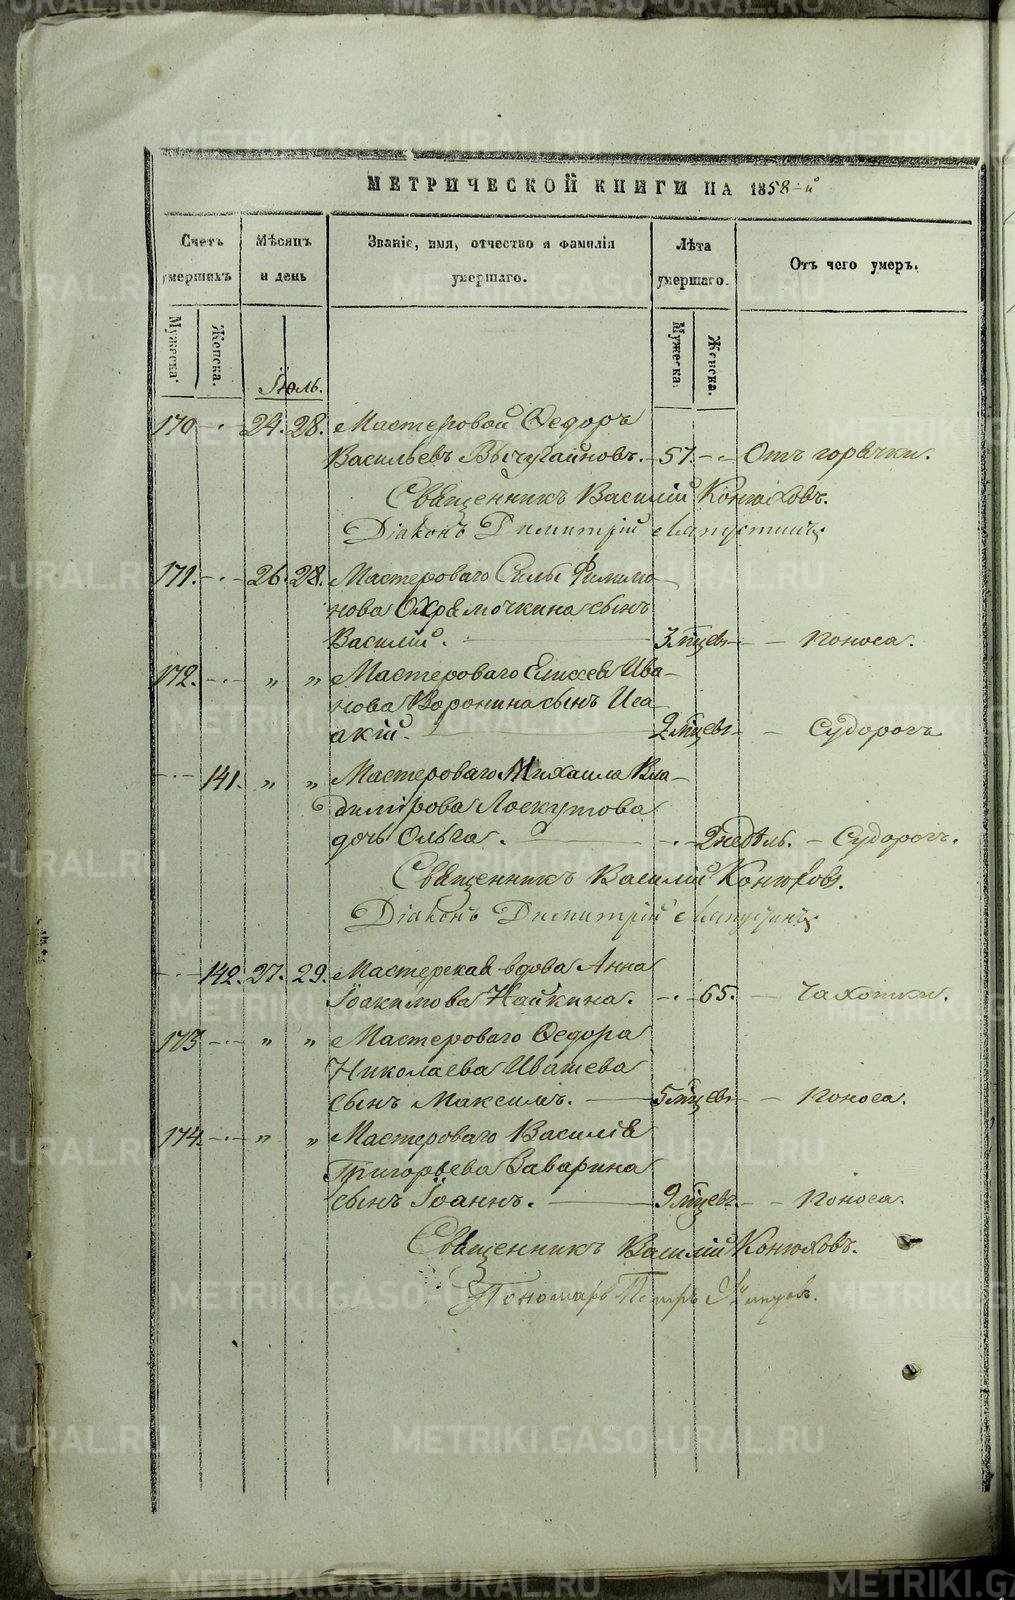 МЕТРИЧЕСКОЙ КНИГИ НА 1858-й
Счетъ умершихъ Мѣсяцъ и день Званіе, имя, отчество и фамилія умершаго. Лѣта умершаго. Отъ чего умеръ.
Мужеска. Женска. Мужеска. Женска.
Іюль.
170 24. 28. Мастеровой Ѳедоръ
Васильевъ 57. Отъ горячки.
Священникъ Василій Конюховъ.
Діаконъ Димитрій
171. 26. 28. Мастероваго Силы Филимо-
нова Охремочкина сынъ
Василій. 3 мѣцевъ Поноса.
172. " " Мастероваго Елисея Ива-
нова Воронина сынъ Иса-
акій. 2 мѣцевъ Судорогъ
141. " " Мастероваго Михаила Вла-
димірова Лоскутова
дочь Ольга. 2 недѣль. Судорогъ.
Священникъ Василій Конюховъ.
Діаконъ Димитрій
142. 27. 29. Мастерская вдова Анна
Іоакимова Найкина. 65. Чахотки.
173 " " Мастероваго Ѳедора
Николаева Ивашева
сынъ Максимъ. 5 мѣцевъ Поноса.
174. " " Мастероваго Василія
Григорьева Заварина
сынъ Іоаннъ. 9 мѣцевъ. Поноса.
Священникъ Василій Конюховъ.
Пономарь Петръ
METRIKI.GASO-URAL.RU